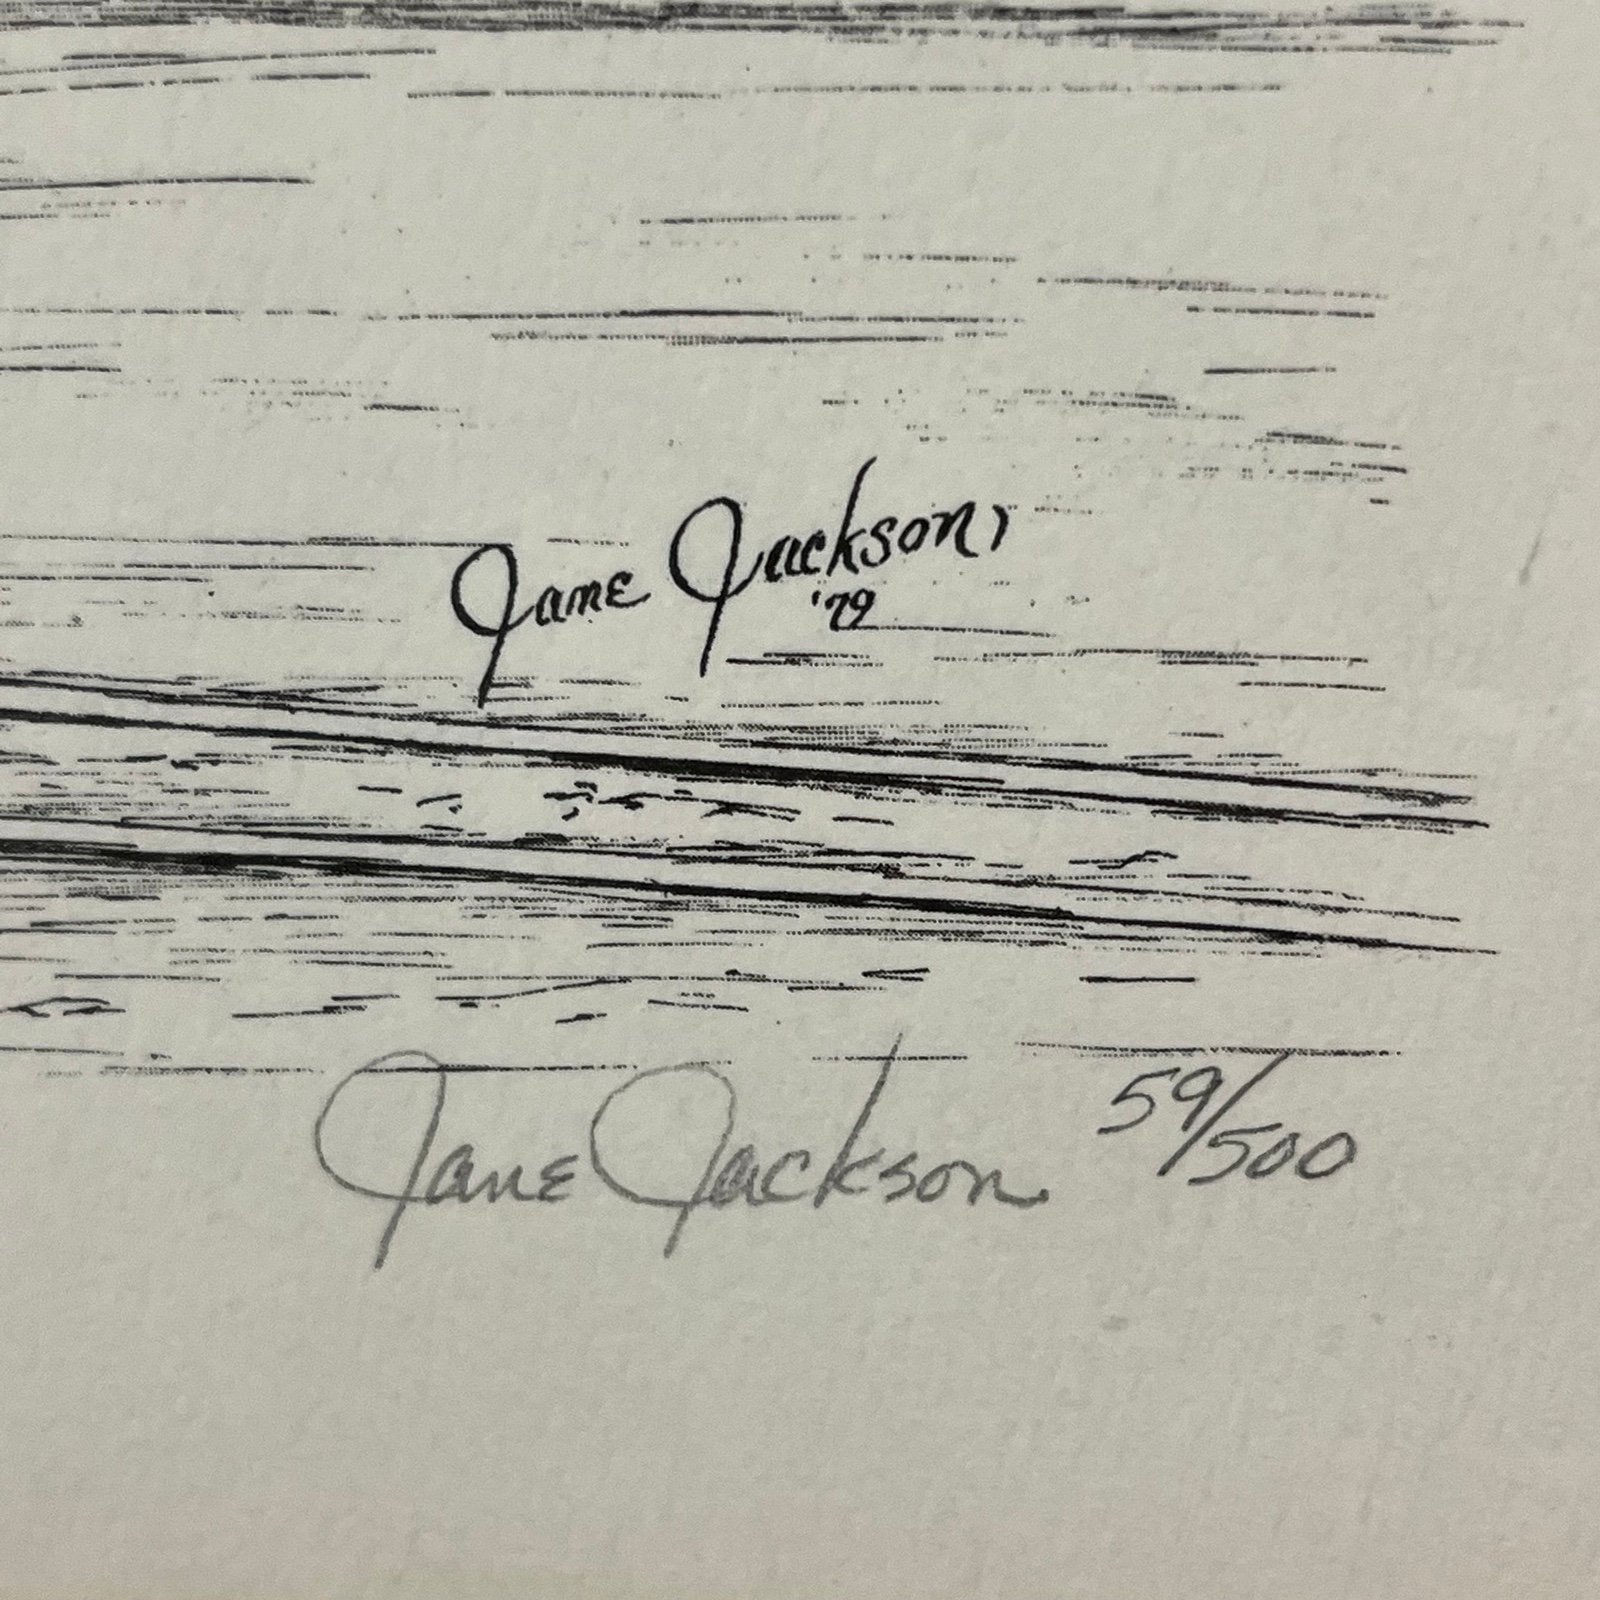 Jane Jackson,
'79
Jane Jackson 59/500